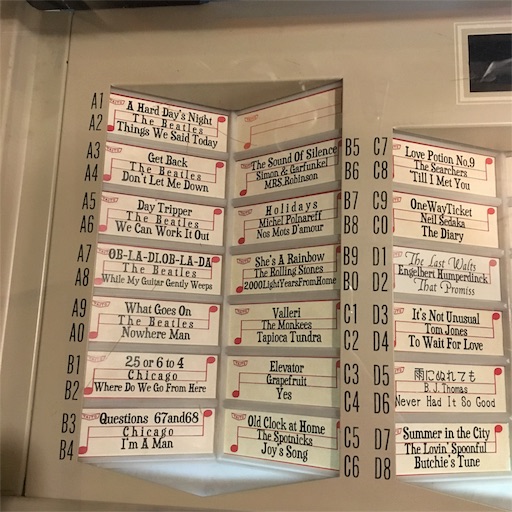 A1
A2
A Hard Day's Night
The Beatles
Things We Said Today
A3
A4
Get Back
The Beatles
Don't Let Me Down
A5
A6
Day Tripper
The Beatles
We Can Work It Out
A7
A8
OB-LA-DI.OB-LA-DA
The Beatles
While My Guitar Gently Weeps
A9
A0
What Goes On
The Beatles
Nowhere Man
B1
B2
25 or 6 to 4
Chicago
Where Do We Go From Here
B3
B4
Questions 67and68
Chicago
I'm A Man
B5
B6
The Sound Of Silence
Simon & Garfunkel
MRS.Robinson
B7
B8
Holidays
Michel Polnareff
Nos Mots D'amour
B9
B0
She's A Rainbow
The Rolling Stones
2000LightYearsFromHome
C1
C2
Valleri
The Monkees
Tapioca Tundra
C3
C4
Elevator
Grapefruit
Yes
C5
C6
Old Clock at Home
The Spotnicks
Joy's Song
C7
C8
Love Potion No.9
The Searchers
'Till I Met You
C9
C0
OneWayTicket
Neil Sedaka
The Diary
D1
D2
The Last Walts
Engelbert Humperdinck
That Promiss
D3
D4
It's Not Unusual
Tom Jones
To Wait For Love
D5
D6
雨にぬれても
B.J.Thomas
Never Had It So Good
D7
D8
Summer in the City
The Lovin' Spoonful
Butchie's Tune